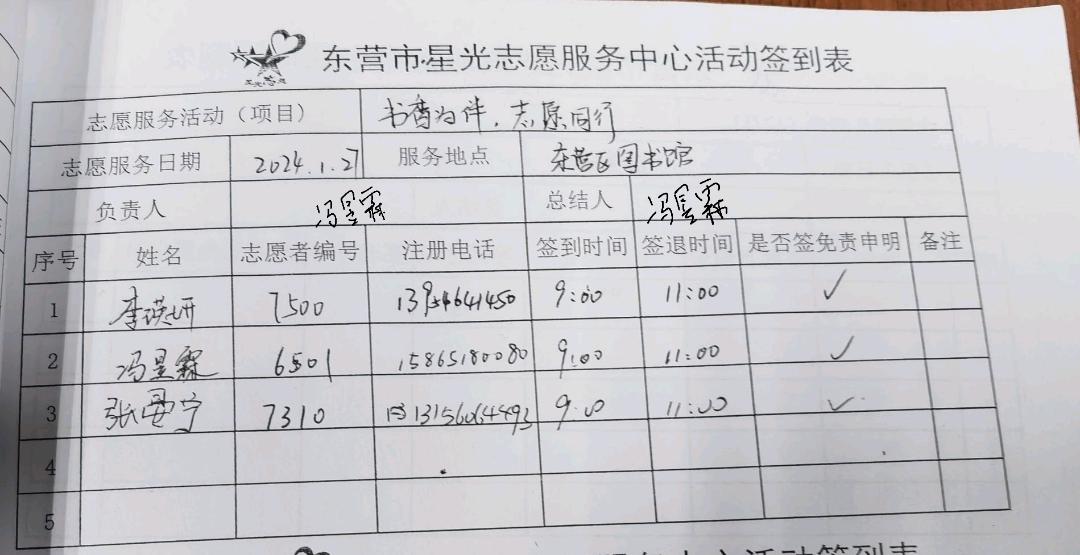 东营市星光志愿服务中心活动签到表
志愿服务活动（项目） 书香为伴，志愿同行
志愿服务日期 2024.1.27 服务地点 东营区图书馆
负责人 冯昱霖 总结人 冯昱霖
序号 姓名 志愿者编号 注册电话 签到时间 签退时间 是否签免责申明 备注
1 李瑛妍 7500 13954641450 9:00 11:00 ✓
2 冯昱霖 6501 15865180080 9:00 11:00 ✓
3 张 宁 7310 13156064493 9:00 11:00 ✓
4
5
服务中心活动签到表